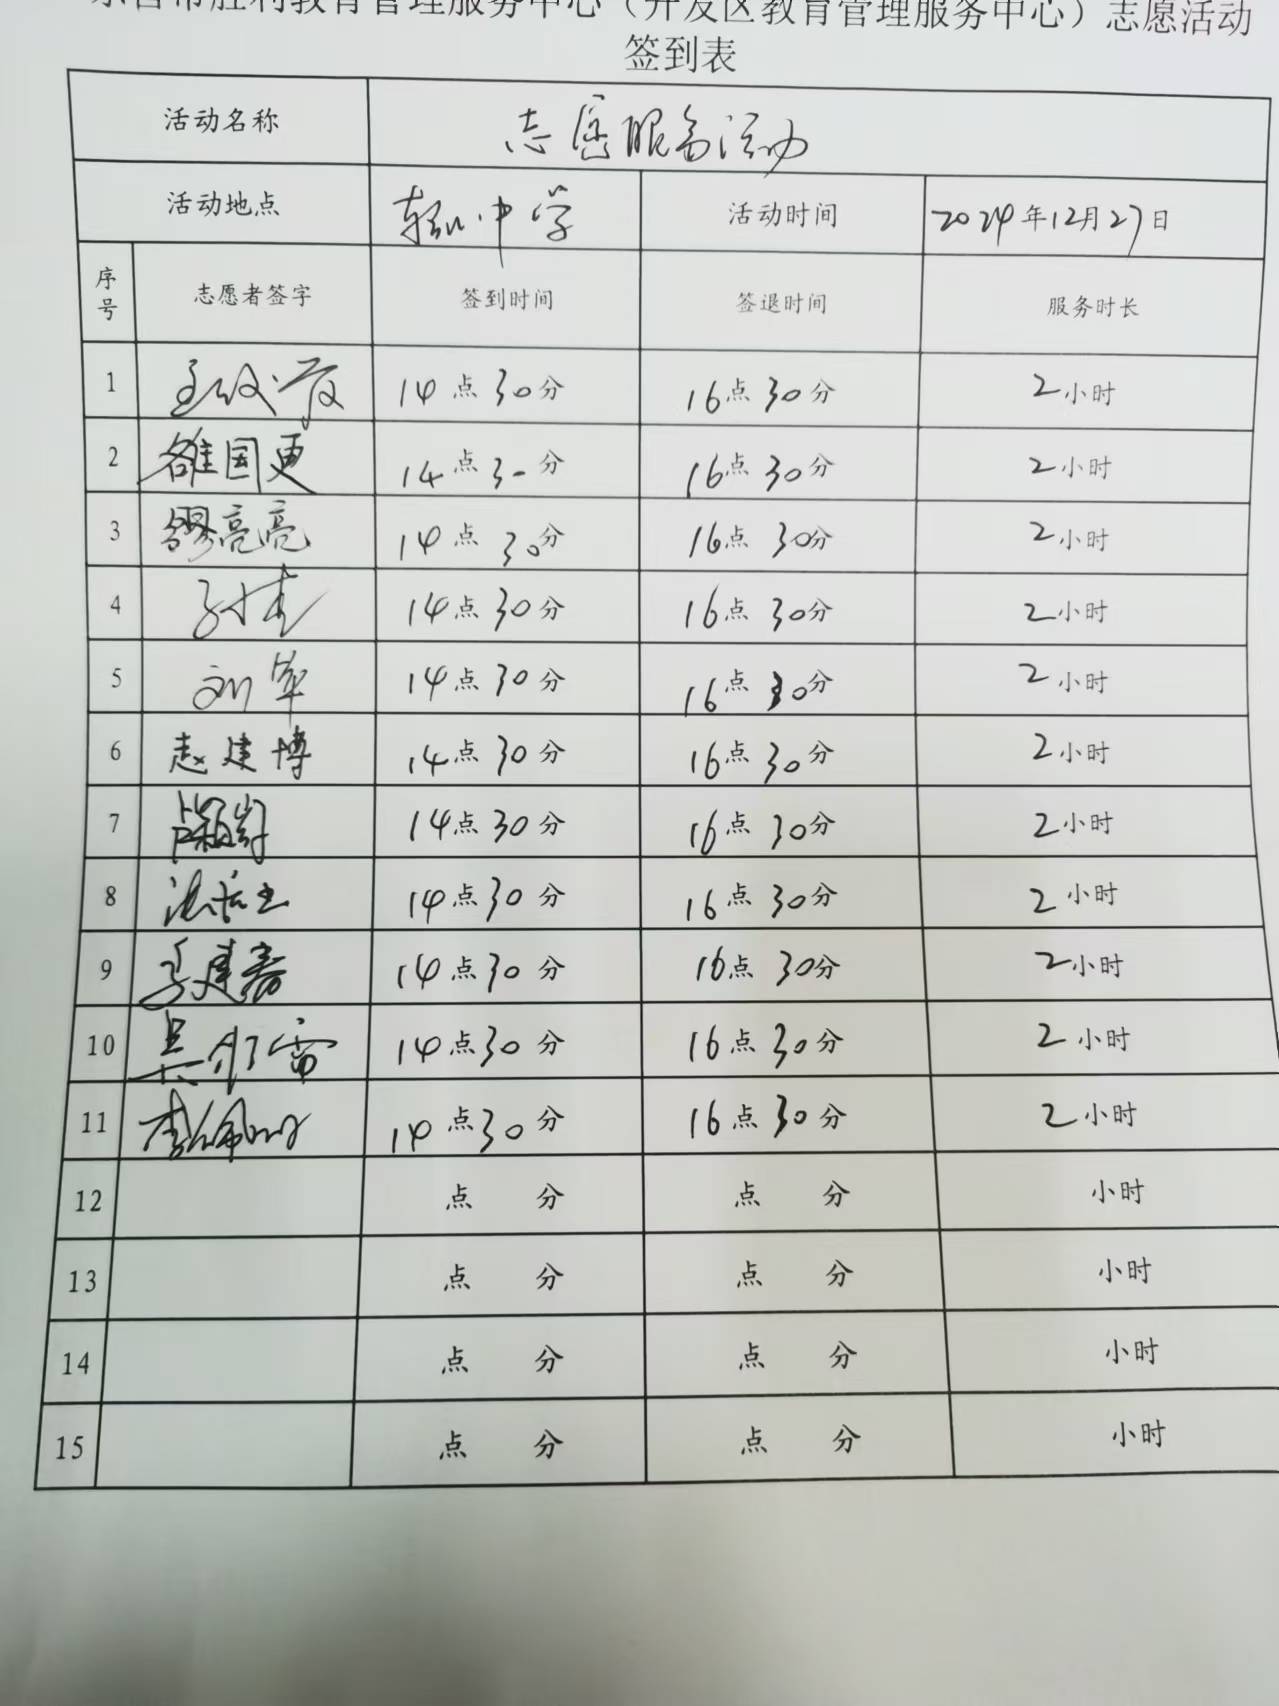 东营市胜利教育管理服务中心（开发区教育管理服务中心）志愿活动
签到表
活动名称 志愿服务活动
活动地点 中学 活动时间 2024年12月27日
序号 志愿者签字 签到时间 签退时间 服务时长
1 14点30分 16点30分 2小时
2 雒国更 14点30分 16点30分 2小时
3 缪亮亮 14点30分 16点30分 2小时
4 14点30分 16点30分 2小时
5 刘华 14点30分 16点30分 2小时
6 赵建博 14点30分 16点30分 2小时
7 14点30分 16点30分 2小时
8 14点30分 16点30分 2小时
9 14点30分 16点30分 2小时
10 14点30分 16点30分 2小时
11 14点30分 16点30分 2小时
12 点 分 点 分 小时
13 点 分 点 分 小时
14 点 分 点 分 小时
15 点 分 点 分 小时